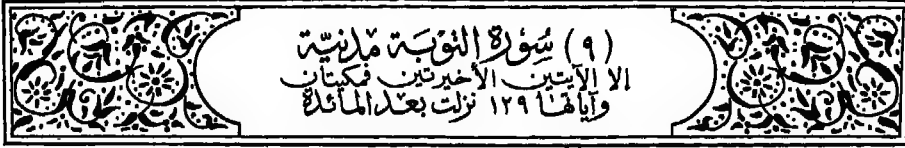 (٩) سُورَة التَّوْبَة مَدَنِيَّة
إلا الآيتين الأخيرتين فمكيتان
وآياتها ١٢٩ نزلت بعد المائدة